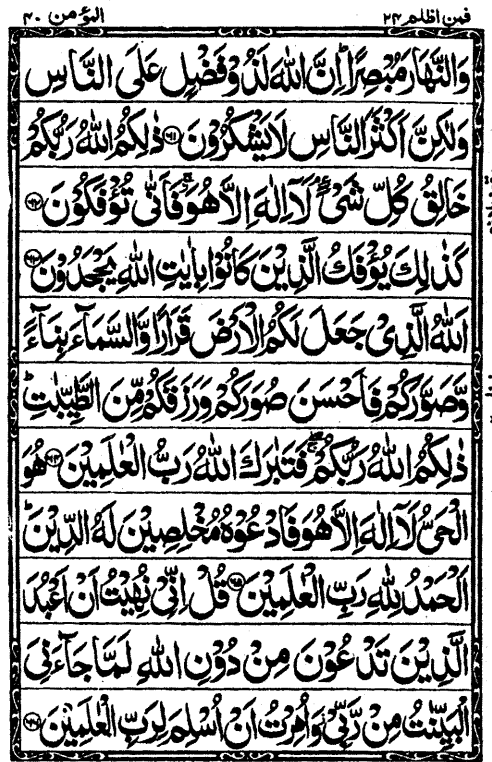 فمن اظلم ۲۴
المؤمن ۴۰
وَالنَّهَارَ مُبْصِرًا ؕ اِنَّ اللّٰهَ لَذُوْ فَضْلٍ عَلَى النَّاسِ
وَلٰكِنَّ اَكْثَرَ النَّاسِ لَا يَشْكُرُوْنَ ﴿۶۱﴾ ذٰلِكُمُ اللّٰهُ رَبُّكُمْ
خَالِقُ كُلِّ شَىْءٍ ۘ لَاۤ اِلٰهَ اِلَّا هُوَ ۚ فَاَنّٰى تُؤْفَكُوْنَ ﴿۶۲﴾
كَذٰلِكَ يُؤْفَكُ الَّذِيْنَ كَانُوْا بِاٰيٰتِ اللّٰهِ يَجْحَدُوْنَ ﴿۶۳﴾
اَللّٰهُ الَّذِىْ جَعَلَ لَكُمُ الْاَرْضَ قَرَارًا وَّالسَّمَآءَ بِنَآءً
وَّصَوَّرَكُمْ فَاَحْسَنَ صُوَرَكُمْ وَرَزَقَكُمْ مِّنَ الطَّيِّبٰتِ ؕ
ذٰلِكُمُ اللّٰهُ رَبُّكُمْ ۖ ۚ فَتَبٰرَكَ اللّٰهُ رَبُّ الْعٰلَمِيْنَ ﴿۶۴﴾ هُوَ
الْحَىُّ لَاۤ اِلٰهَ اِلَّا هُوَ فَادْعُوْهُ مُخْلِصِيْنَ لَهُ الدِّيْنَ ؕ
اَلْحَمْدُ لِلّٰهِ رَبِّ الْعٰلَمِيْنَ ﴿۶۵﴾ قُلْ اِنِّىْ نُهِيْتُ اَنْ اَعْبُدَ
الَّذِيْنَ تَدْعُوْنَ مِنْ دُوْنِ اللّٰهِ لَمَّا جَآءَنِىَ
الْبَيِّنٰتُ مِنْ رَّبِّىْ وَاُمِرْتُ اَنْ اُسْلِمَ لِرَبِّ الْعٰلَمِيْنَ ﴿۶۶﴾